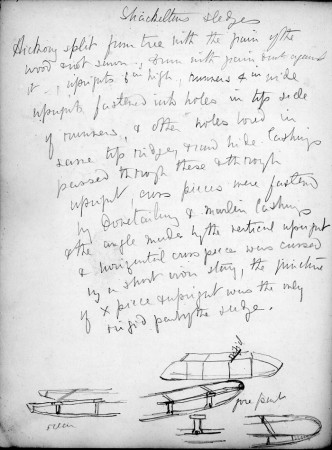 Shackletons sledges
Hickory split from tree with the grain of the
wood & not sawn, & run with grain not against
it -, uprights 6 in high, runners 4 in wide
uprights fastened into holes in top side
of runners, & other holes bored in
same top ridges & raw hide lashings
passed through these & through
upright, cross pieces were fastened
by Dovetailing & marlin lashings
& the angle made by the vertical upright
& horizontal cross piece was crossed
by a short iron stay, the juncture
of X piece & upright was the only
rigid part of the sledge.
rigid
fore part